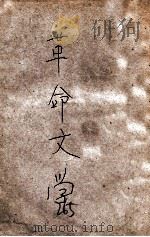 革命文學
mtoou.info